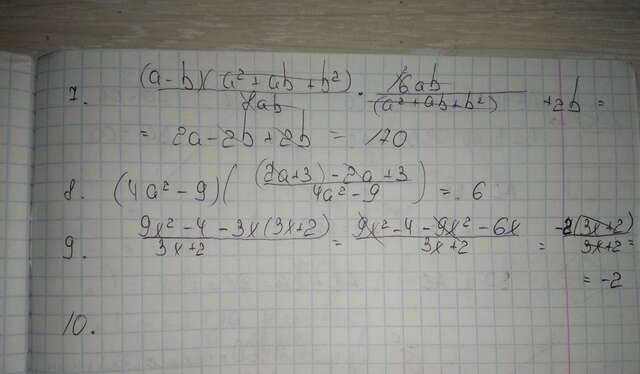 7. (a-b)(a²+ab+b²)/8ab · 16ab/(a²+ab+b²) + 2b =
= 2a-2b+2b = 170
8. (4a²-9)((2a+3)-2a+3/4a²-9) = 6
9. 9x²-4-3x(3x+2)/3x+2 = 9x²-4-9x²-6x/3x+2 = -2(3x+2)/3x+2 =
= -2
10.